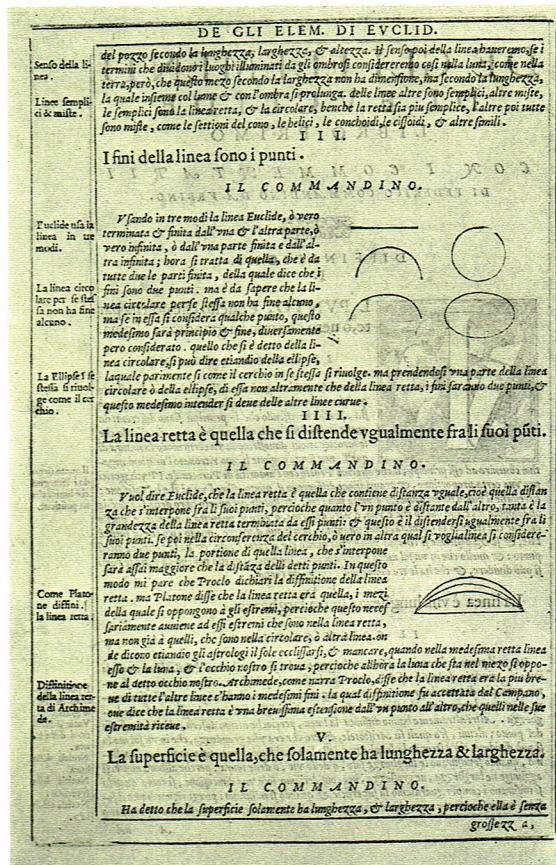 DE GLI ELEM. DI EVCLID.
Senso della linea.
del pozzo secondo la lunghezza, larghezza, & altezza. Il senso poi della linea haueremo, se i
termini che diuidono i luoghi illuminati da gli ombrosi considereremo cosi nella luna, come nella
terra, però, che questo mezo secondo la larghezza non ha dimensione, ma secondo la lunghezza,
Linee semplici & miste.
la quale insieme col lume & con l'ombra si prolunga. delle linee altre sono semplici, altre miste,
le semplici sono la linea retta, & la circolare, benche la retta sia piu semplice, l'altre poi tutte
sono miste, come le settioni del cono, le helici, le conchoidi, le cissoidi, & altre simili.
III.
I fini della linea sono i punti.
IL COMMANDINO.
Euclide usa la linea in tre modi.
Vsando in tre modi la linea Euclide, ò vero
terminata & finita dall'vna & l'altra parte, ò
vero infinita, ò dall'vna parte finita e dall'al-
tra infinita; hora si tratta di quella, che è da
tutte due le parti finita, della quale dice che i
fini sono due punti. ma è da sapere che la li-
La linea circolare per se stessa non ha fine alcuno.
nea circolare per se stessa non ha fine alcuno,
ma se in essa si considera qualche punto, questo
medesimo sarà principio & fine, diuersamente
pero considerato. quello che si è detto della li-
nea circolare, si può dire etiandio della ellipse,
La Ellipse i se stessa si riuolge come il cerchio.
laquale parimente si come il cerchio in se stessa si riuolge. ma prendendosi vna parte della linea
circolare ò della ellipse, di essa non altramente che della linea retta, i fini saranno due punti, &
questo medesimo intender si deue delle altre linee curue.
IIII.
La linea retta è quella che si distende vgualmente fra li suoi pũti.
IL COMMANDINO.
Vuol dire Euclide, che la linea retta è quella che contiene distanza vguale, cioè quella distan
za che s'interpone fra li suoi punti, percioche quanto l'vn punto è distante dall'altro, tanta è la
grandezza della linea retta terminata da essi punti: & questo è il distendersi ugualmente fra li
suoi punti. se poi nella circonferenza del cerchio, ò uero in altra qual si voglia linea si considere-
ranno due punti, la portione di quella linea, che s'interpone
sarà assai maggiore che la distãza delli detti punti. In questo
modo mi pare che Proclo dichiari la diffinitione della linea
Come Platone diffinì la linea retta.
retta. ma Platone disse che la linea retta era quella, i mezi
della quale si oppongono à gli estremi, percioche questo neces
sariamente auuiene ad essi estremi che sono nella linea retta,
ma non già à quelli, che sono nella circolare, ò altra linea. on
de dicono etiandio gli astrologi il sole ecclissarsi, & mancare, quando nella medesima retta linea
esso & la luna, & l'occhio nostro si troua, percioche allhora la luna che sta nel mezo si oppo-
Diffinitione della linea retta di Archimede.
ne al detto occhio nostro. Archimede, come narra Proclo, disse che la linea retta era la piu bre-
ue di tutte l'altre linee c'hanno i medesimi fini. la qual diffinitione fu accettata dal Campano,
oue dice che la linea retta è vna breuissima estensione dall'vn punto all'altro, che quelli nelle sue
estremità riceue.
V.
La superficie è quella, che solamente ha lunghezza & larghezza.
IL COMMANDINO.
Ha detto che la superficie solamente ha lunghezza, & larghezza, percioche ella è senza
grossezza,